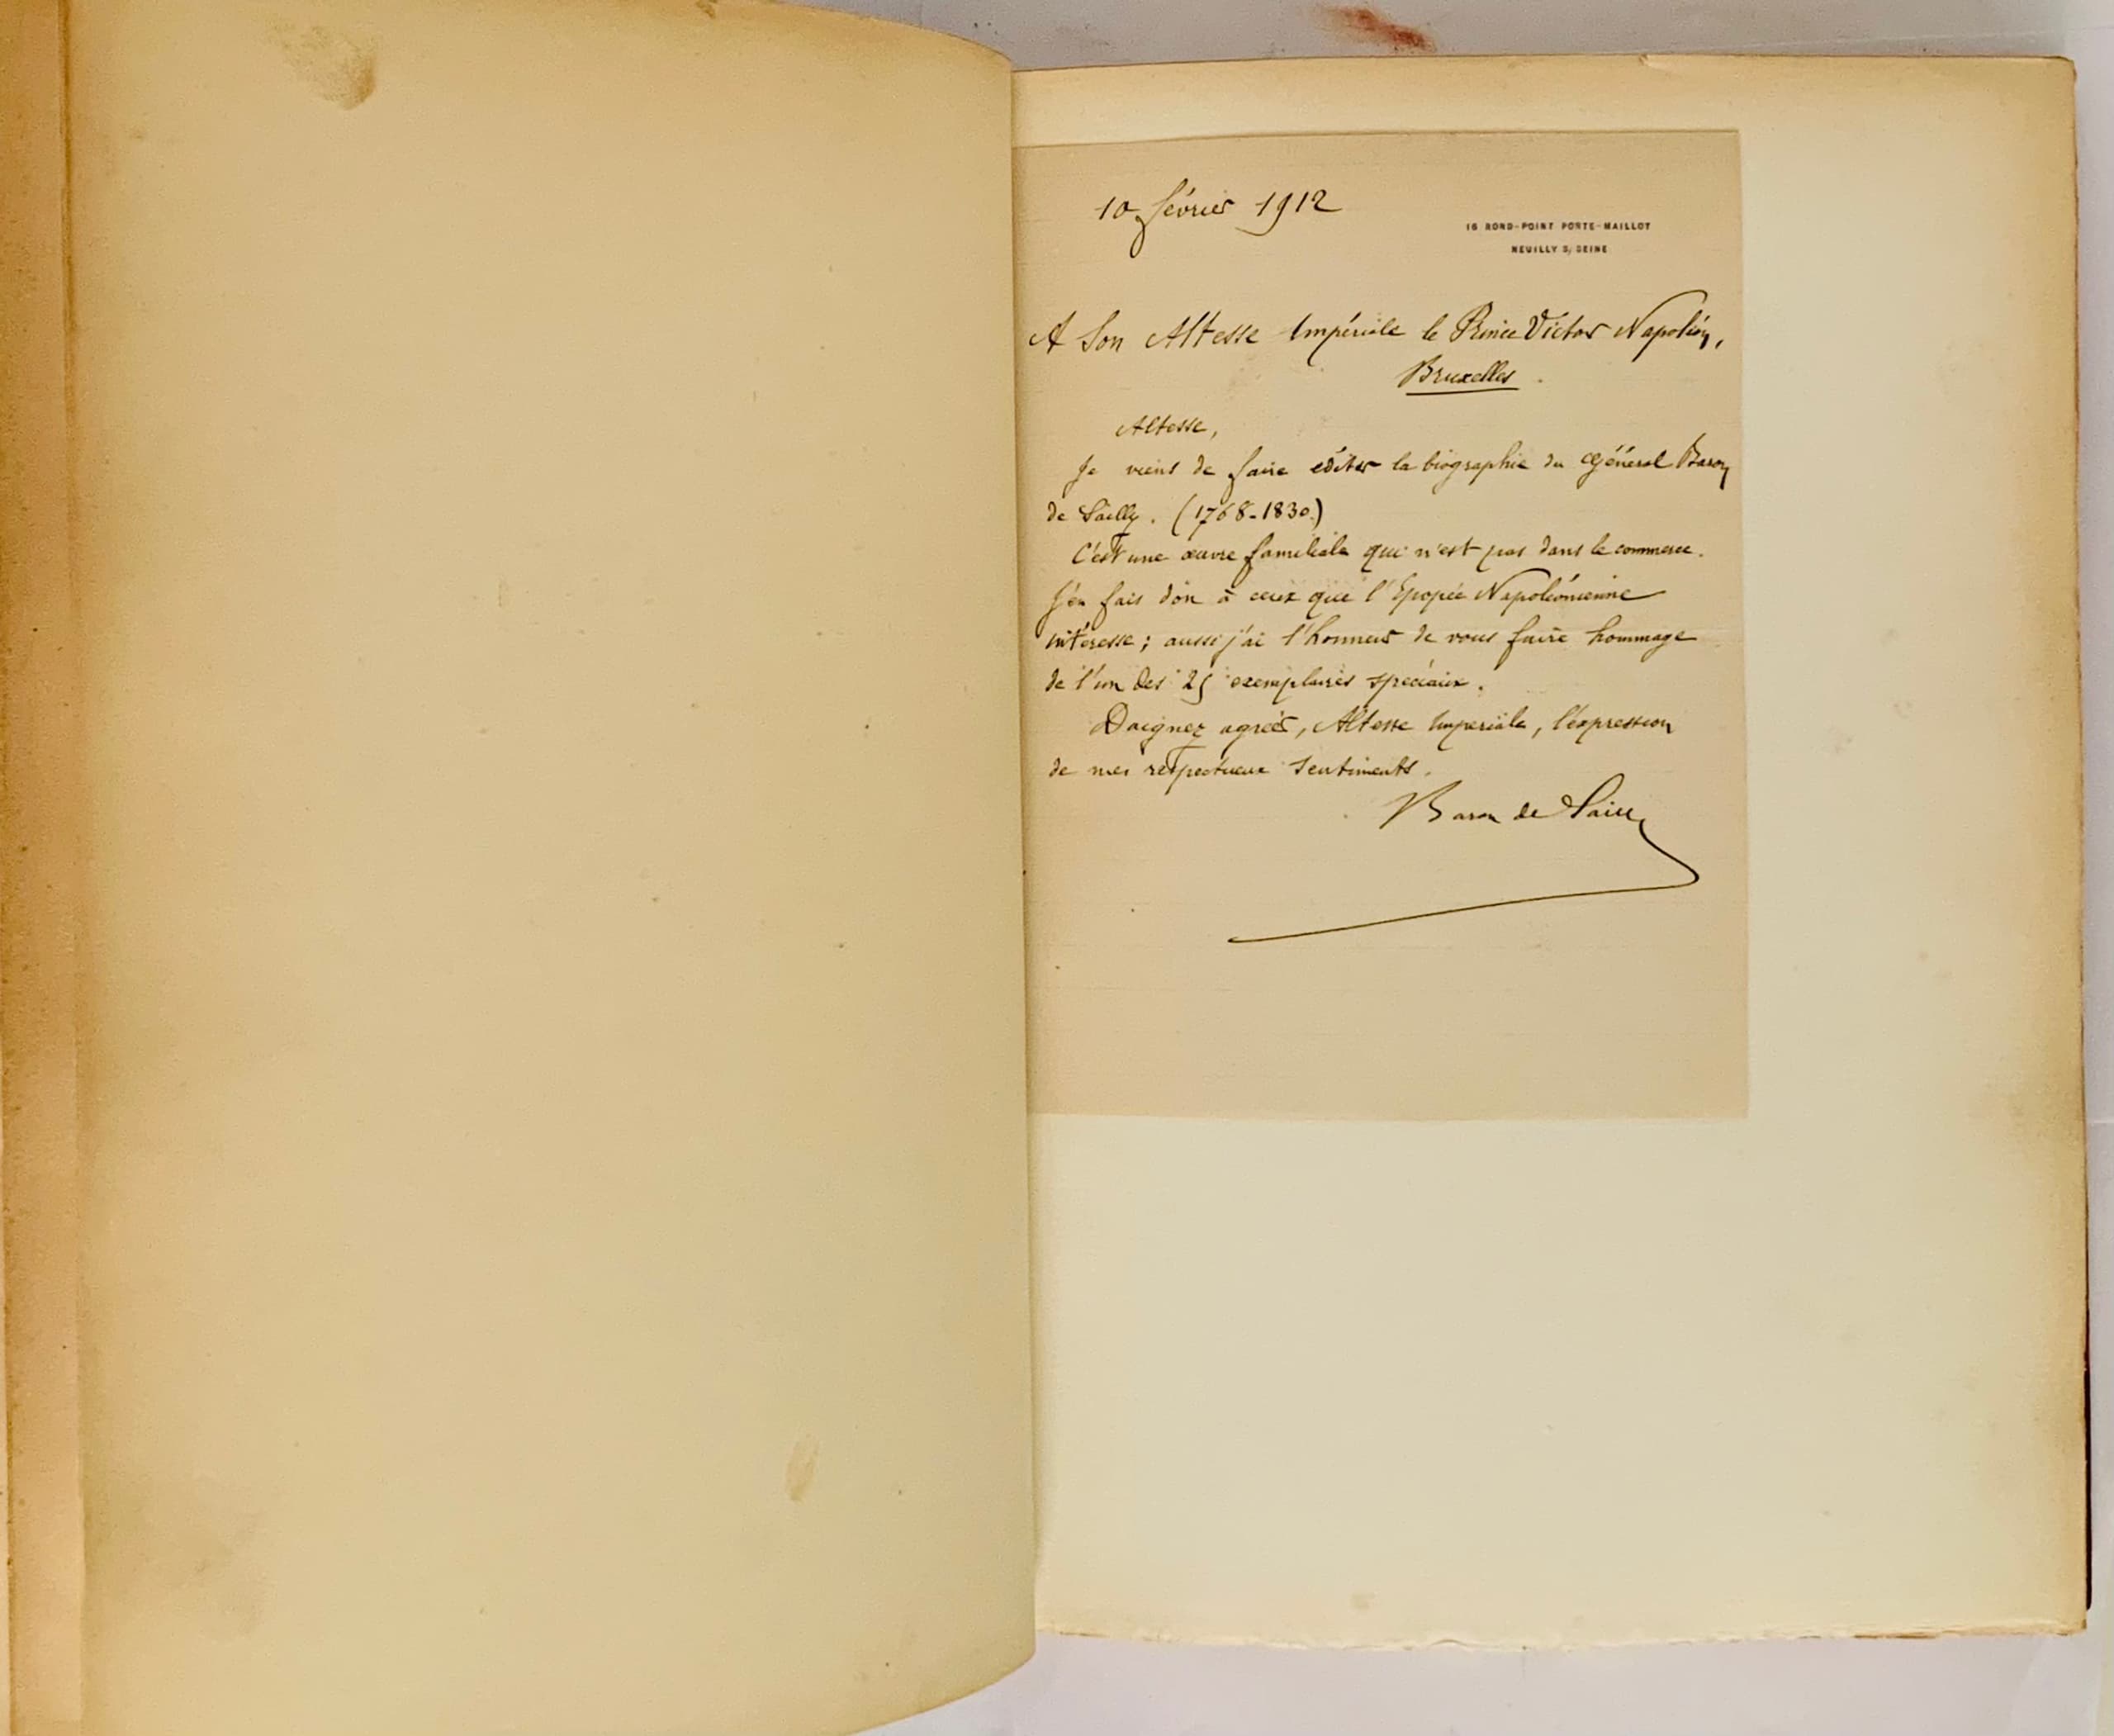 10 février 1912
16 ROND-POINT PORTE-MAILLOT
NEUILLY S/ SEINE
A Son Altesse Impériale le Prince Victor Napoléon,
Bruxelles.
Altesse,
Je viens de faire éditer la biographie du Général Baron
de Sailly. (1768-1830.)
C'est une œuvre familiale qui n'est pas dans le commerce.
J'en fais don à ceux que l'Epopée Napoléonienne
intéresse ; aussi j'ai l'honneur de vous faire hommage
de l'un des 25 exemplaires spéciaux.
Daignez agréer, Altesse Impériale, l'expression
de mes respectueux sentiments.
Baron de Sailly